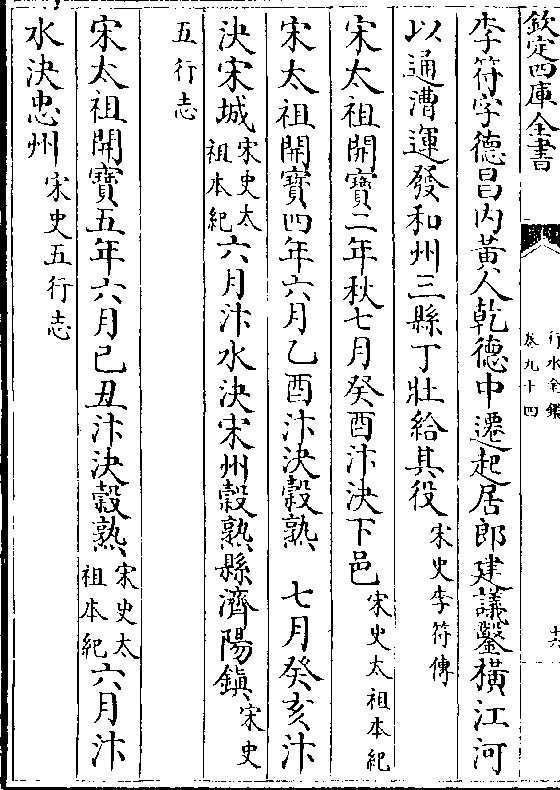 欽定四庫全書
行水金鑑
卷九十四
李符字德昌內黃人乾德中遷起居郎建議鑿橫江河
以通漕運發和州三縣丁壯給其役宋史李符傳
宋太祖開寶二年秋七月癸酉汴決下邑宋史太祖本紀
宋太祖開寶四年六月乙酉汴決穀熟 七月癸亥汴
決宋城宋史太祖本紀六月汴水決宋州穀熟縣濟陽鎮宋史
五行志
宋太祖開寶五年六月己丑汴決穀熟宋史太祖本紀六月汴
水決忠州宋史五行志